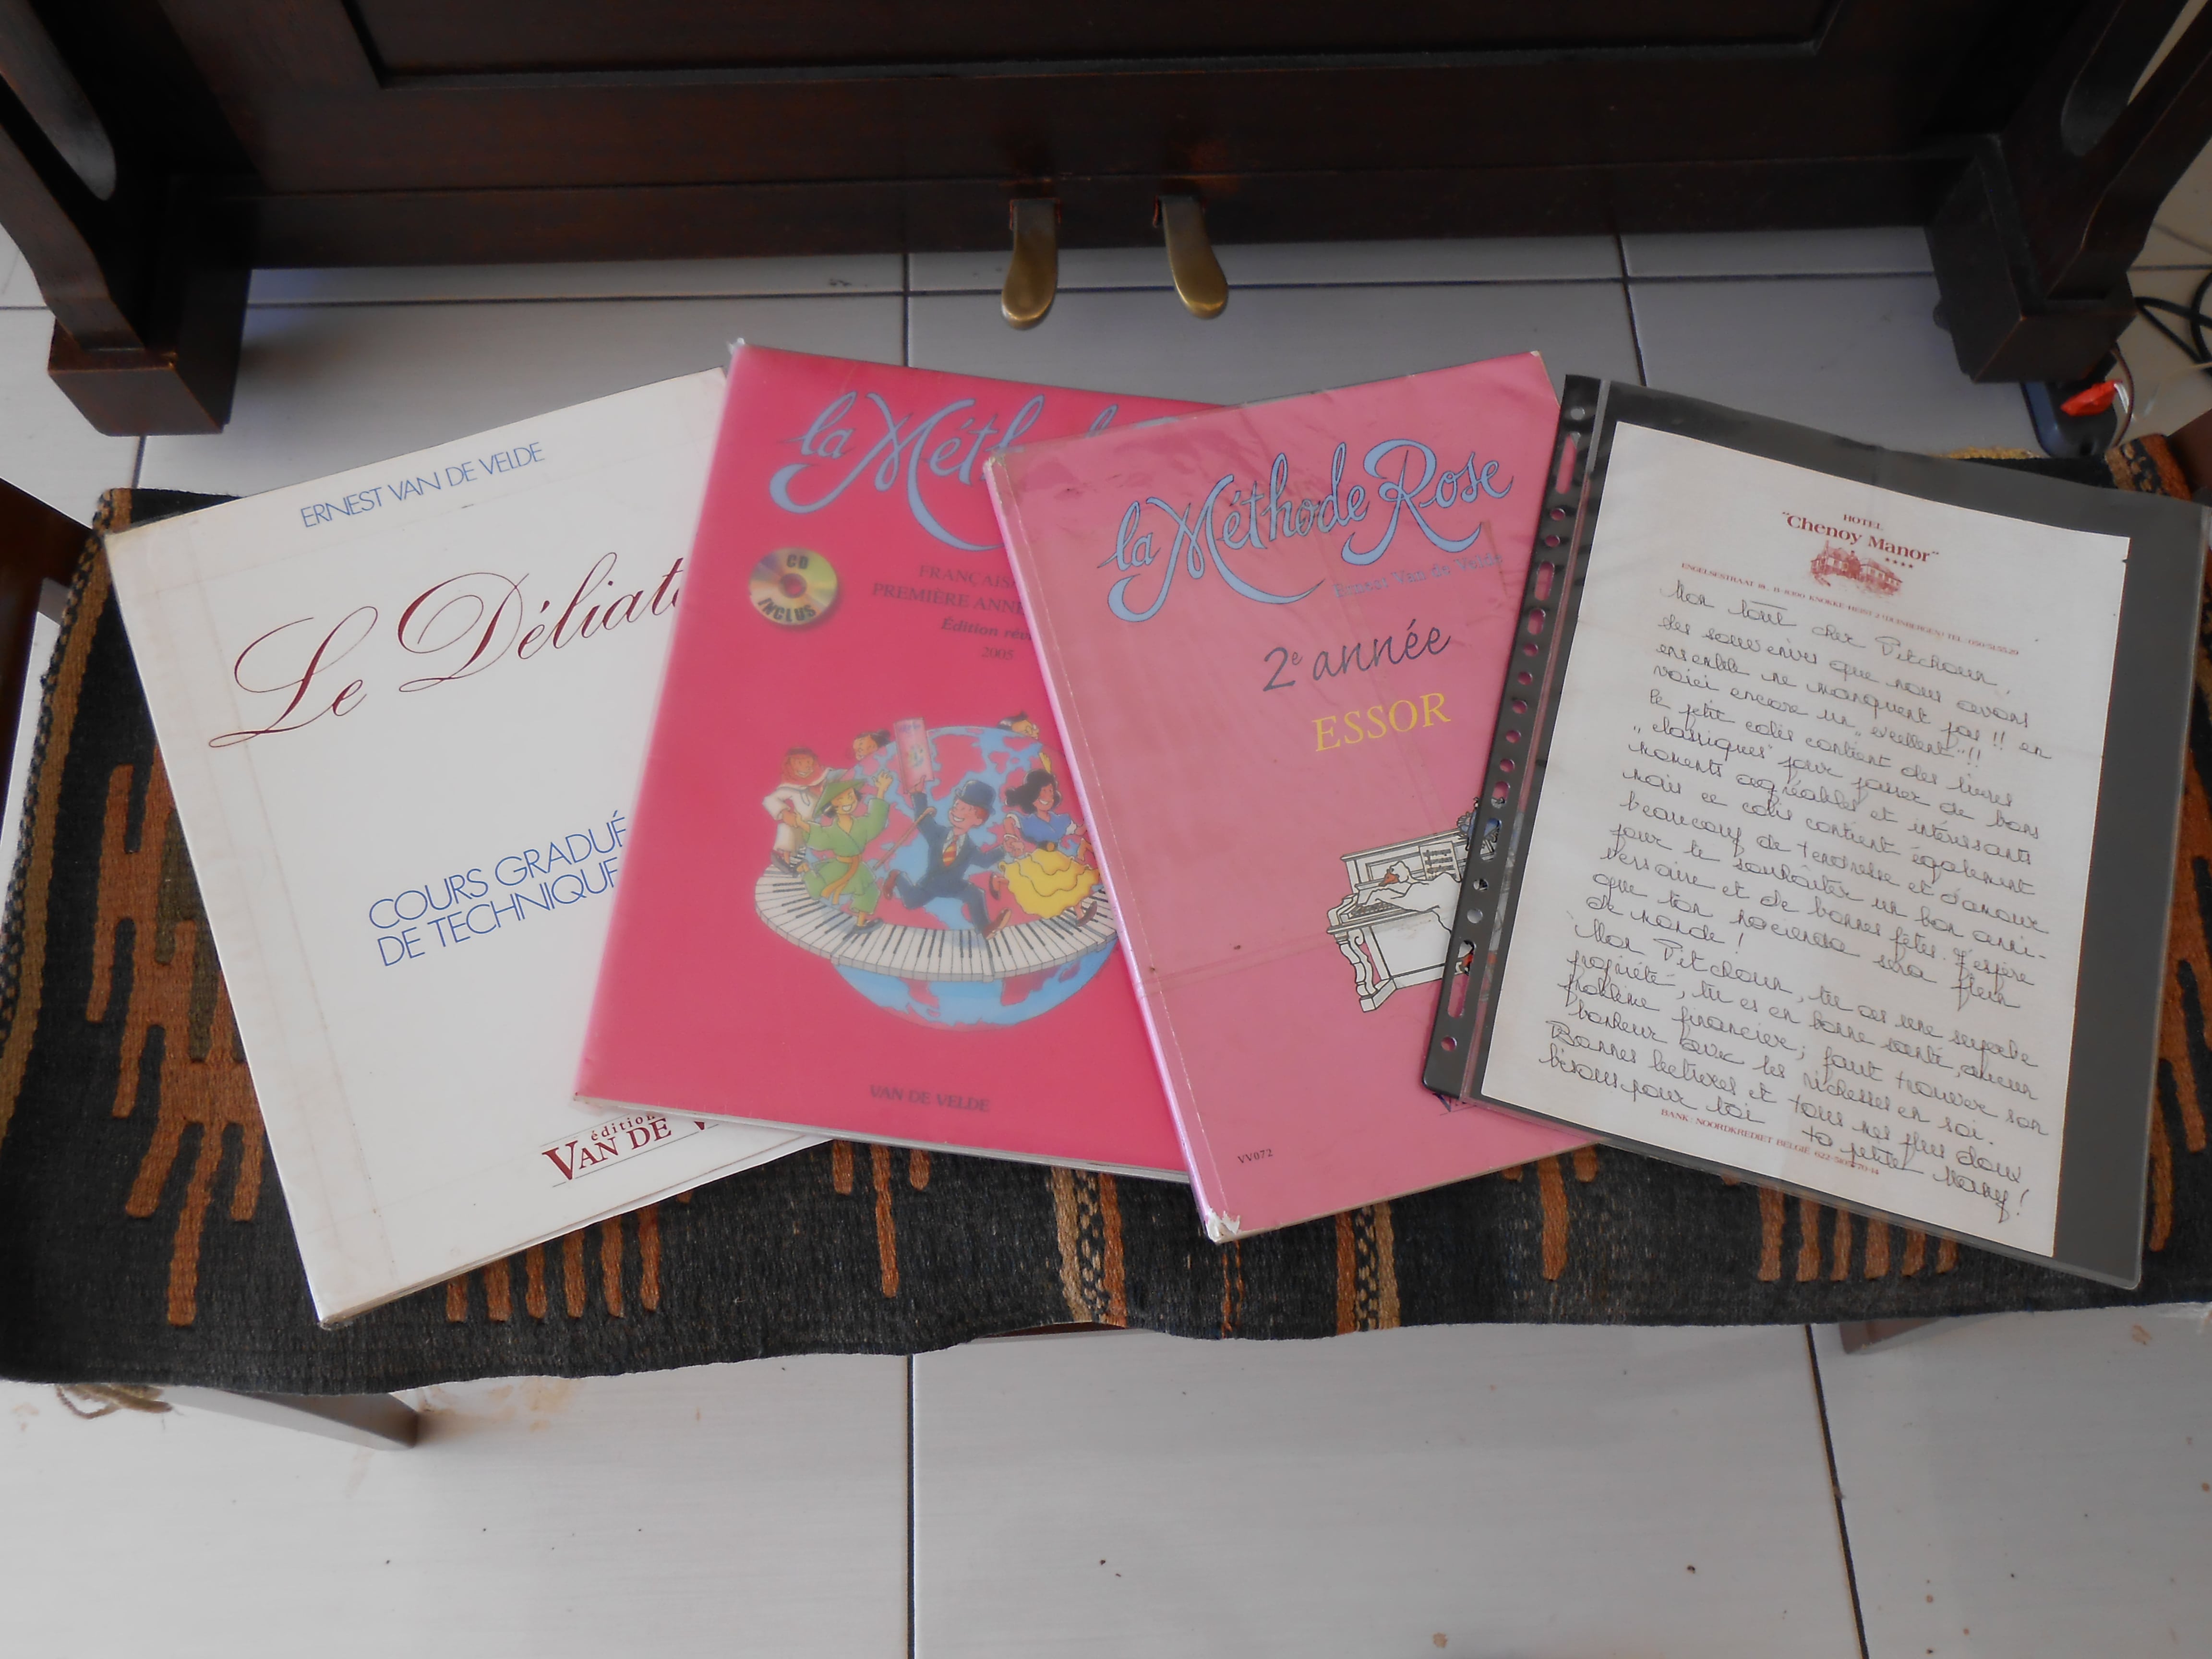 ERNEST VAN DE VELDE
Le Déliat
COURS GRADUÉ
DE TECHNIQUE
édition
VAN DE V
la Méth
CD
INCLUS
FRANÇAIS
PREMIÈRE ANNÉ
Édition rév
2005
VAN DE VELDE
la Méthode Rose
Ernest Van de Velde
2e année
ESSOR
VV072
HOTEL
"Chenoy Manor"
ENGELSESTRAAT 18 - B-8300 KNOKKE-HEIST 2 (DUINBERGEN) TEL. 050-51.55.29
Mon tout cher Pitchoun,
des souvenirs que nous avons
ensemble ne manquent pas !! en
voici encore un "excellent"!!
le petit colis contient des livres
"classiques" pour passer de bons
moments agréables et intéressants
mais ce colis contient également
beaucoup de tendresse et d'amour
pour te souhaiter un bon anni-
versaire et de bonnes fêtes. J'espère
que ton hacienda sera plein
de monde !
Mon Pitchoun, tu as une superbe
propriété, tu es en bonne santé, aucun
problème financier; faut trouver son
bonheur avec les richesses en soi.
Bonnes lectures et tous mes plus doux
bisous pour toi
ta petite Mamy!
BANK - NOORDKREDIET BELGIË